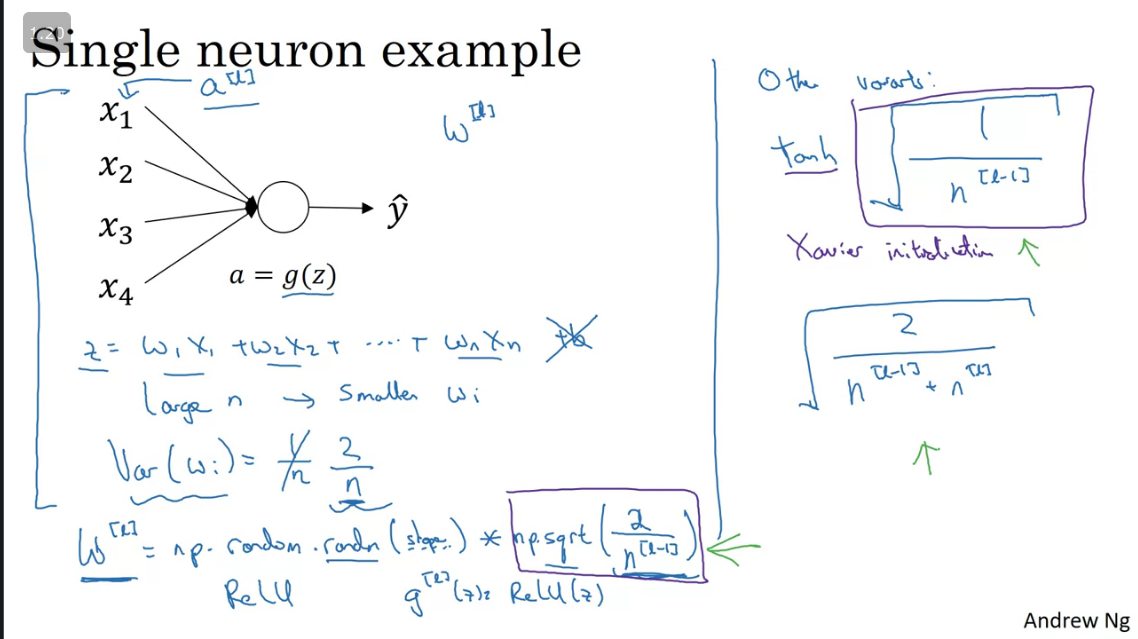 1.20
Single neuron example
a^[l]
x₁
x₂
x₃
x₄
w^[l]
ŷ
a = g(z)
z = w₁x₁ + w₂x₂ + ···· + wₙxₙ +b
Large n → Smaller wᵢ
Var(wᵢ) = 1/n 2/n
W^[l] = np.random.randn(shape..) * np.sqrt(2/n^[l-1])
ReLU g^[l](z) = ReLU(z)
Other variants:
tanh √(1/n^[l-1])
Xavier initialization ↑
√(2/(n^[l-1] + n^[l]))
↑
Andrew Ng